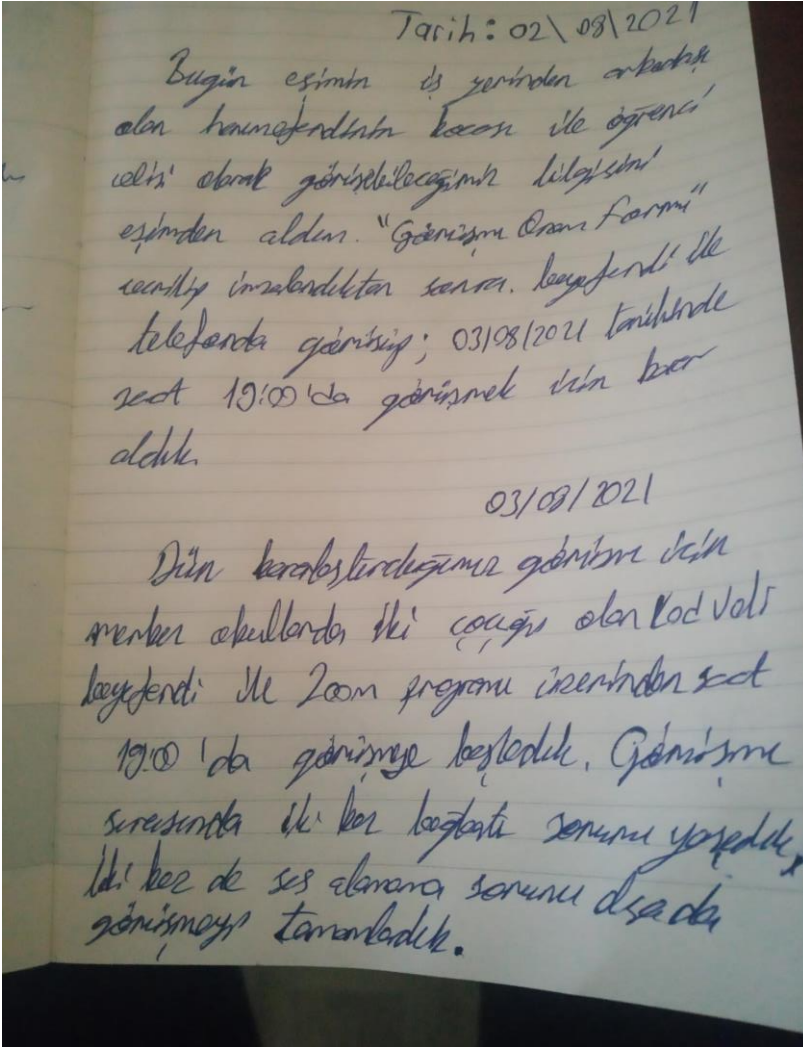 Tarih: 02\08\2021
Bugün eşimin iş yerinden arkadaşı
olan hanımefendinin kocası ile öğrenci
velisi olarak görüşebileceğimiz bilgisini
eşimden aldım. "Görüşme Onam Formu"
verilip imzalandıktan sonra. beyefendi ile
telefonda görüşüp; 03/08/2021 tarihinde
saat 19:00'da görüşmek için karar
aldık.
03/08/2021
Dün kararlaştırdığımız görüşme için
merkez okullarda iki çocuğu olan Kod Veli
beyefendi ile Zoom programı üzerinden saat
19:00'da görüşmeye başladık. Görüşme
sırasında iki kez bağlantı sorunu yaşadık,
İki kez de ses alamama sorunu olsa da
görüşmeyi tamamladık.